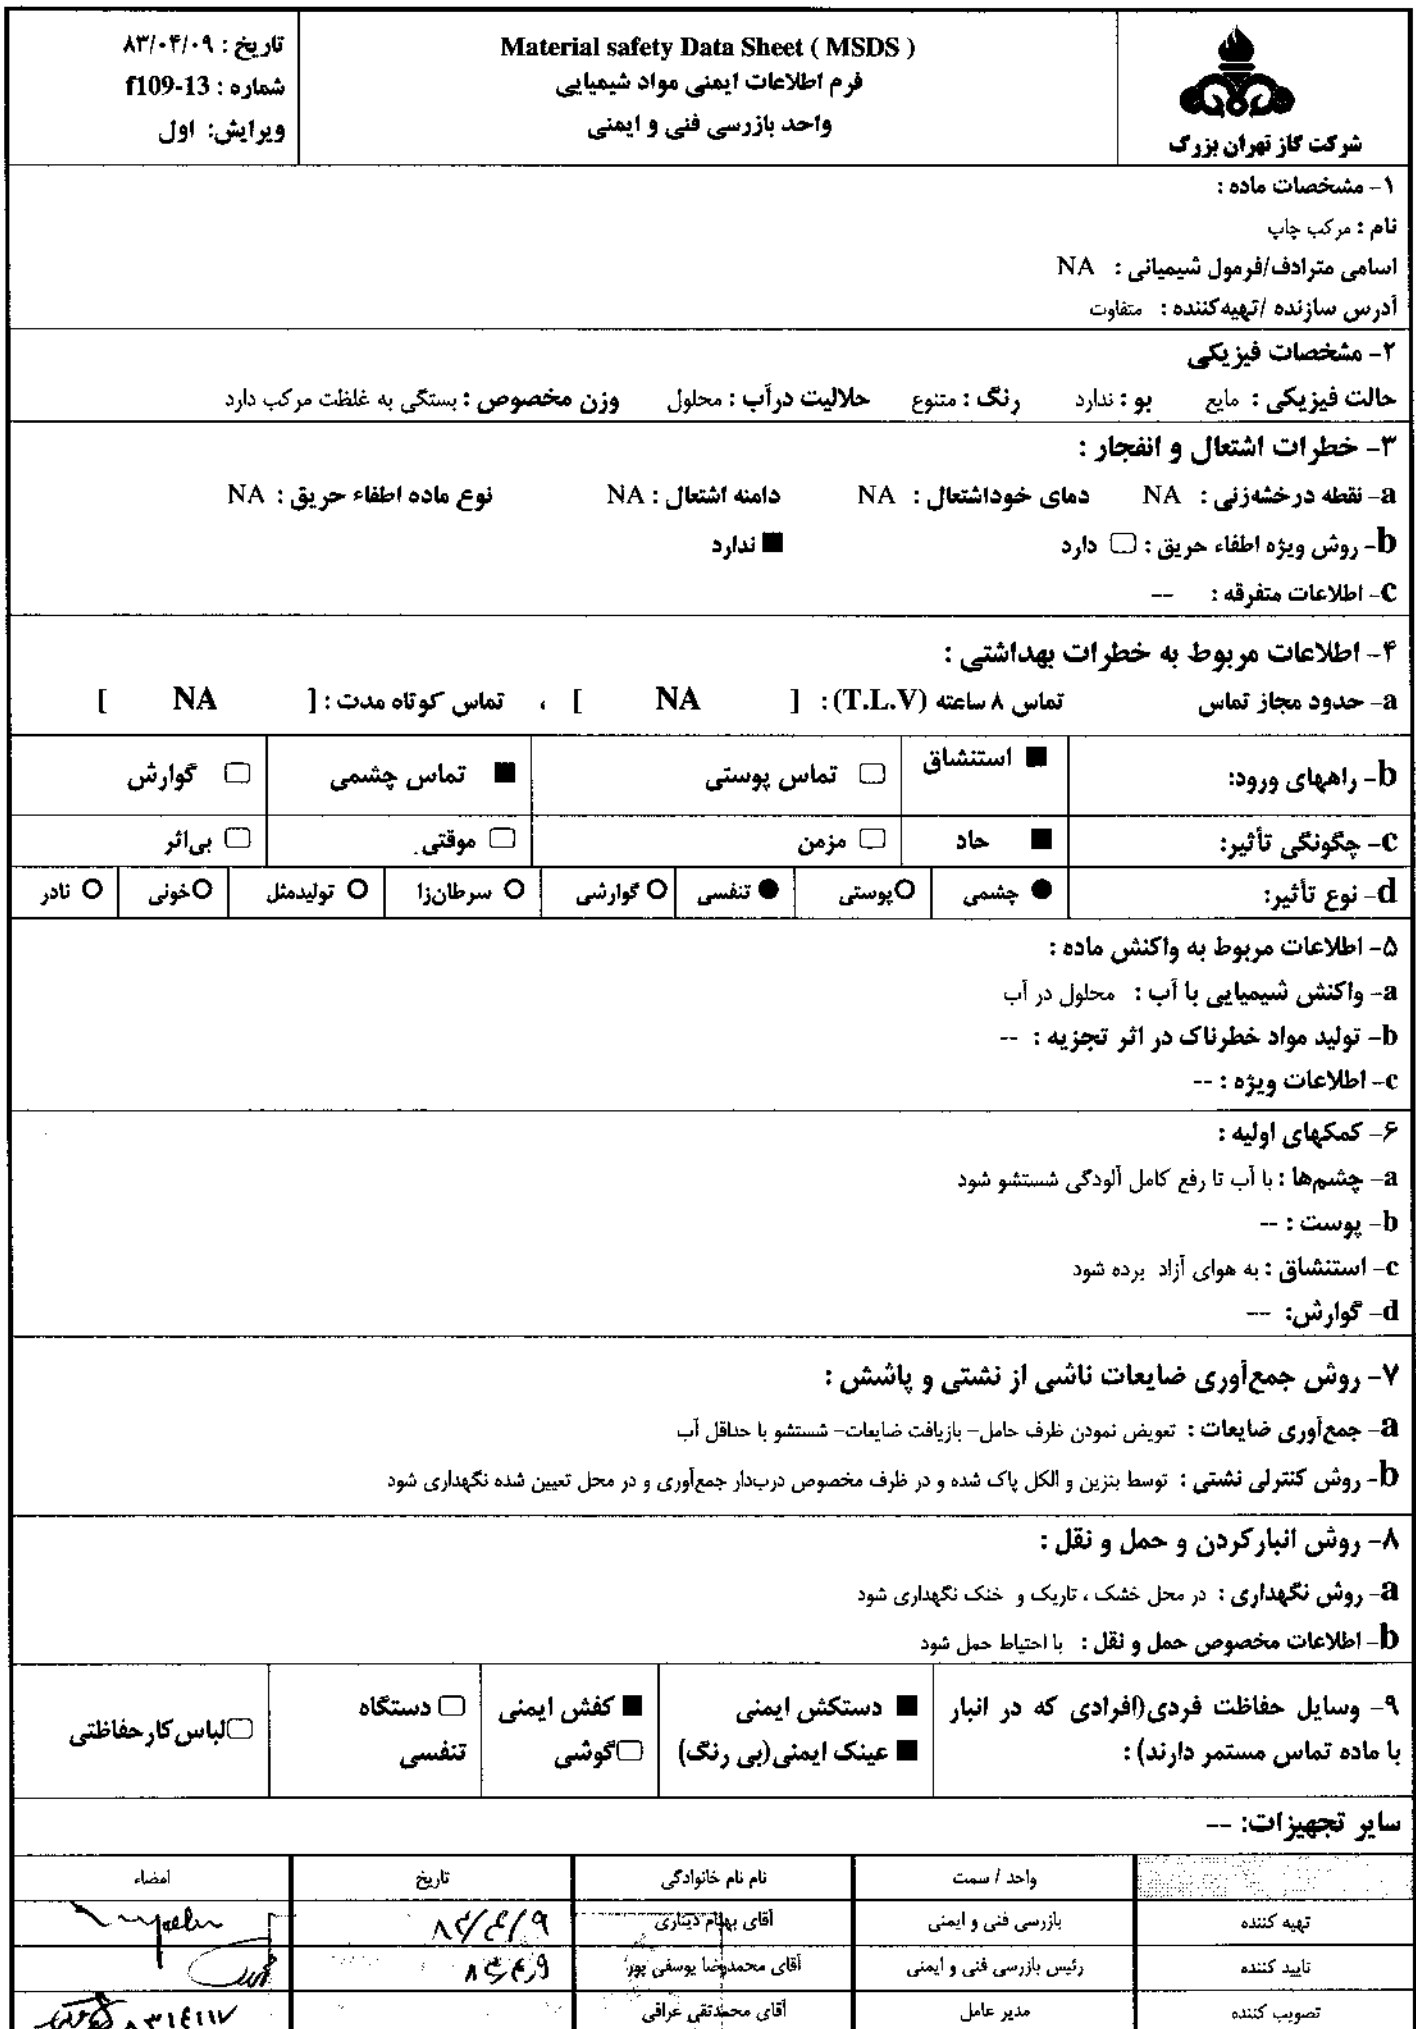 شرکت گاز تهران بزرگ
Material safety Data Sheet ( MSDS )
فرم اطلاعات ایمنی مواد شیمیایی
واحد بازرسی فنی و ایمنی
تاریخ : ۸۳/۰۴/۰۹
شماره : f109-13
ویرایش: اول
۱- مشخصات ماده :
نام : مرکب چاپ
اسامی مترادف/فرمول شیمیائی : NA
آدرس سازنده /تهیه‌کننده : متفاوت
۲- مشخصات فیزیکی
حالت فیزیکی : مایع بو : ندارد رنگ : متنوع حلالیت درآب : محلول وزن مخصوص : بستگی به غلظت مرکب دارد
۳- خطرات اشتعال و انفجار :
a- نقطه درخشه‌زنی : NA دمای خوداشتعال : NA دامنه اشتعال : NA نوع ماده اطفاء حریق : NA
b- روش ویژه اطفاء حریق : ☐ دارد ■ ندارد
c- اطلاعات متفرقه : --
۴- اطلاعات مربوط به خطرات بهداشتی :
a- حدود مجاز تماس تماس ۸ ساعته (T.L.V) : [ NA ] ، تماس کوتاه مدت : [ NA ]
b- راههای ورود: ■ استنشاق ☐ تماس پوستی ■ تماس چشمی ☐ گوارش
c- چگونگی تأثیر: ■ حاد ☐ مزمن ☐ موقتی ☐ بی‌اثر
d- نوع تأثیر: ● چشمی ○ پوستی ● تنفسی ○ گوارشی ○ سرطان‌زا ○ تولیدمثل ○ خونی ○ نادر
۵- اطلاعات مربوط به واکنش ماده :
a- واکنش شیمیایی با آب : محلول در آب
b- تولید مواد خطرناک در اثر تجزیه : --
c- اطلاعات ویژه : --
۶- کمکهای اولیه :
a- چشم‌ها : با آب تا رفع کامل آلودگی شستشو شود
b- پوست : --
c- استنشاق : به هوای آزاد برده شود
d- گوارش: --
۷- روش جمع‌آوری ضایعات ناشی از نشتی و پاشش :
a- جمع‌آوری ضایعات : تعویض نمودن ظرف حامل- بازیافت ضایعات- شستشو با حداقل آب
b- روش کنترلی نشتی : توسط بنزین و الکل پاک شده و در ظرف مخصوص درب‌دار جمع‌آوری و در محل تعیین شده نگهداری شود
۸- روش انبارکردن و حمل و نقل :
a- روش نگهداری : در محل خشک ، تاریک و خنک نگهداری شود
b- اطلاعات مخصوص حمل و نقل : با احتیاط حمل شود
۹- وسایل حفاظت فردی(افرادی که در انبار ■ دستکش ایمنی ■ کفش ایمنی ☐ دستگاه ☐لباس‌کارحفاظتی
با ماده تماس مستمر دارند) : ■ عینک ایمنی(بی رنگ) ☐گوشی تنفسی
سایر تجهیزات: --
واحد / سمت نام نام خانوادگی تاریخ امضاء
تهیه کننده بازرسی فنی و ایمنی آقای بهنام دیناری ۸۳/۴/۹
تایید کننده رئیس بازرسی فنی و ایمنی آقای محمدرضا یوسفی پور ۸۳،۴،۹
تصویب کننده مدیر عامل آقای محمدتقی عراقی